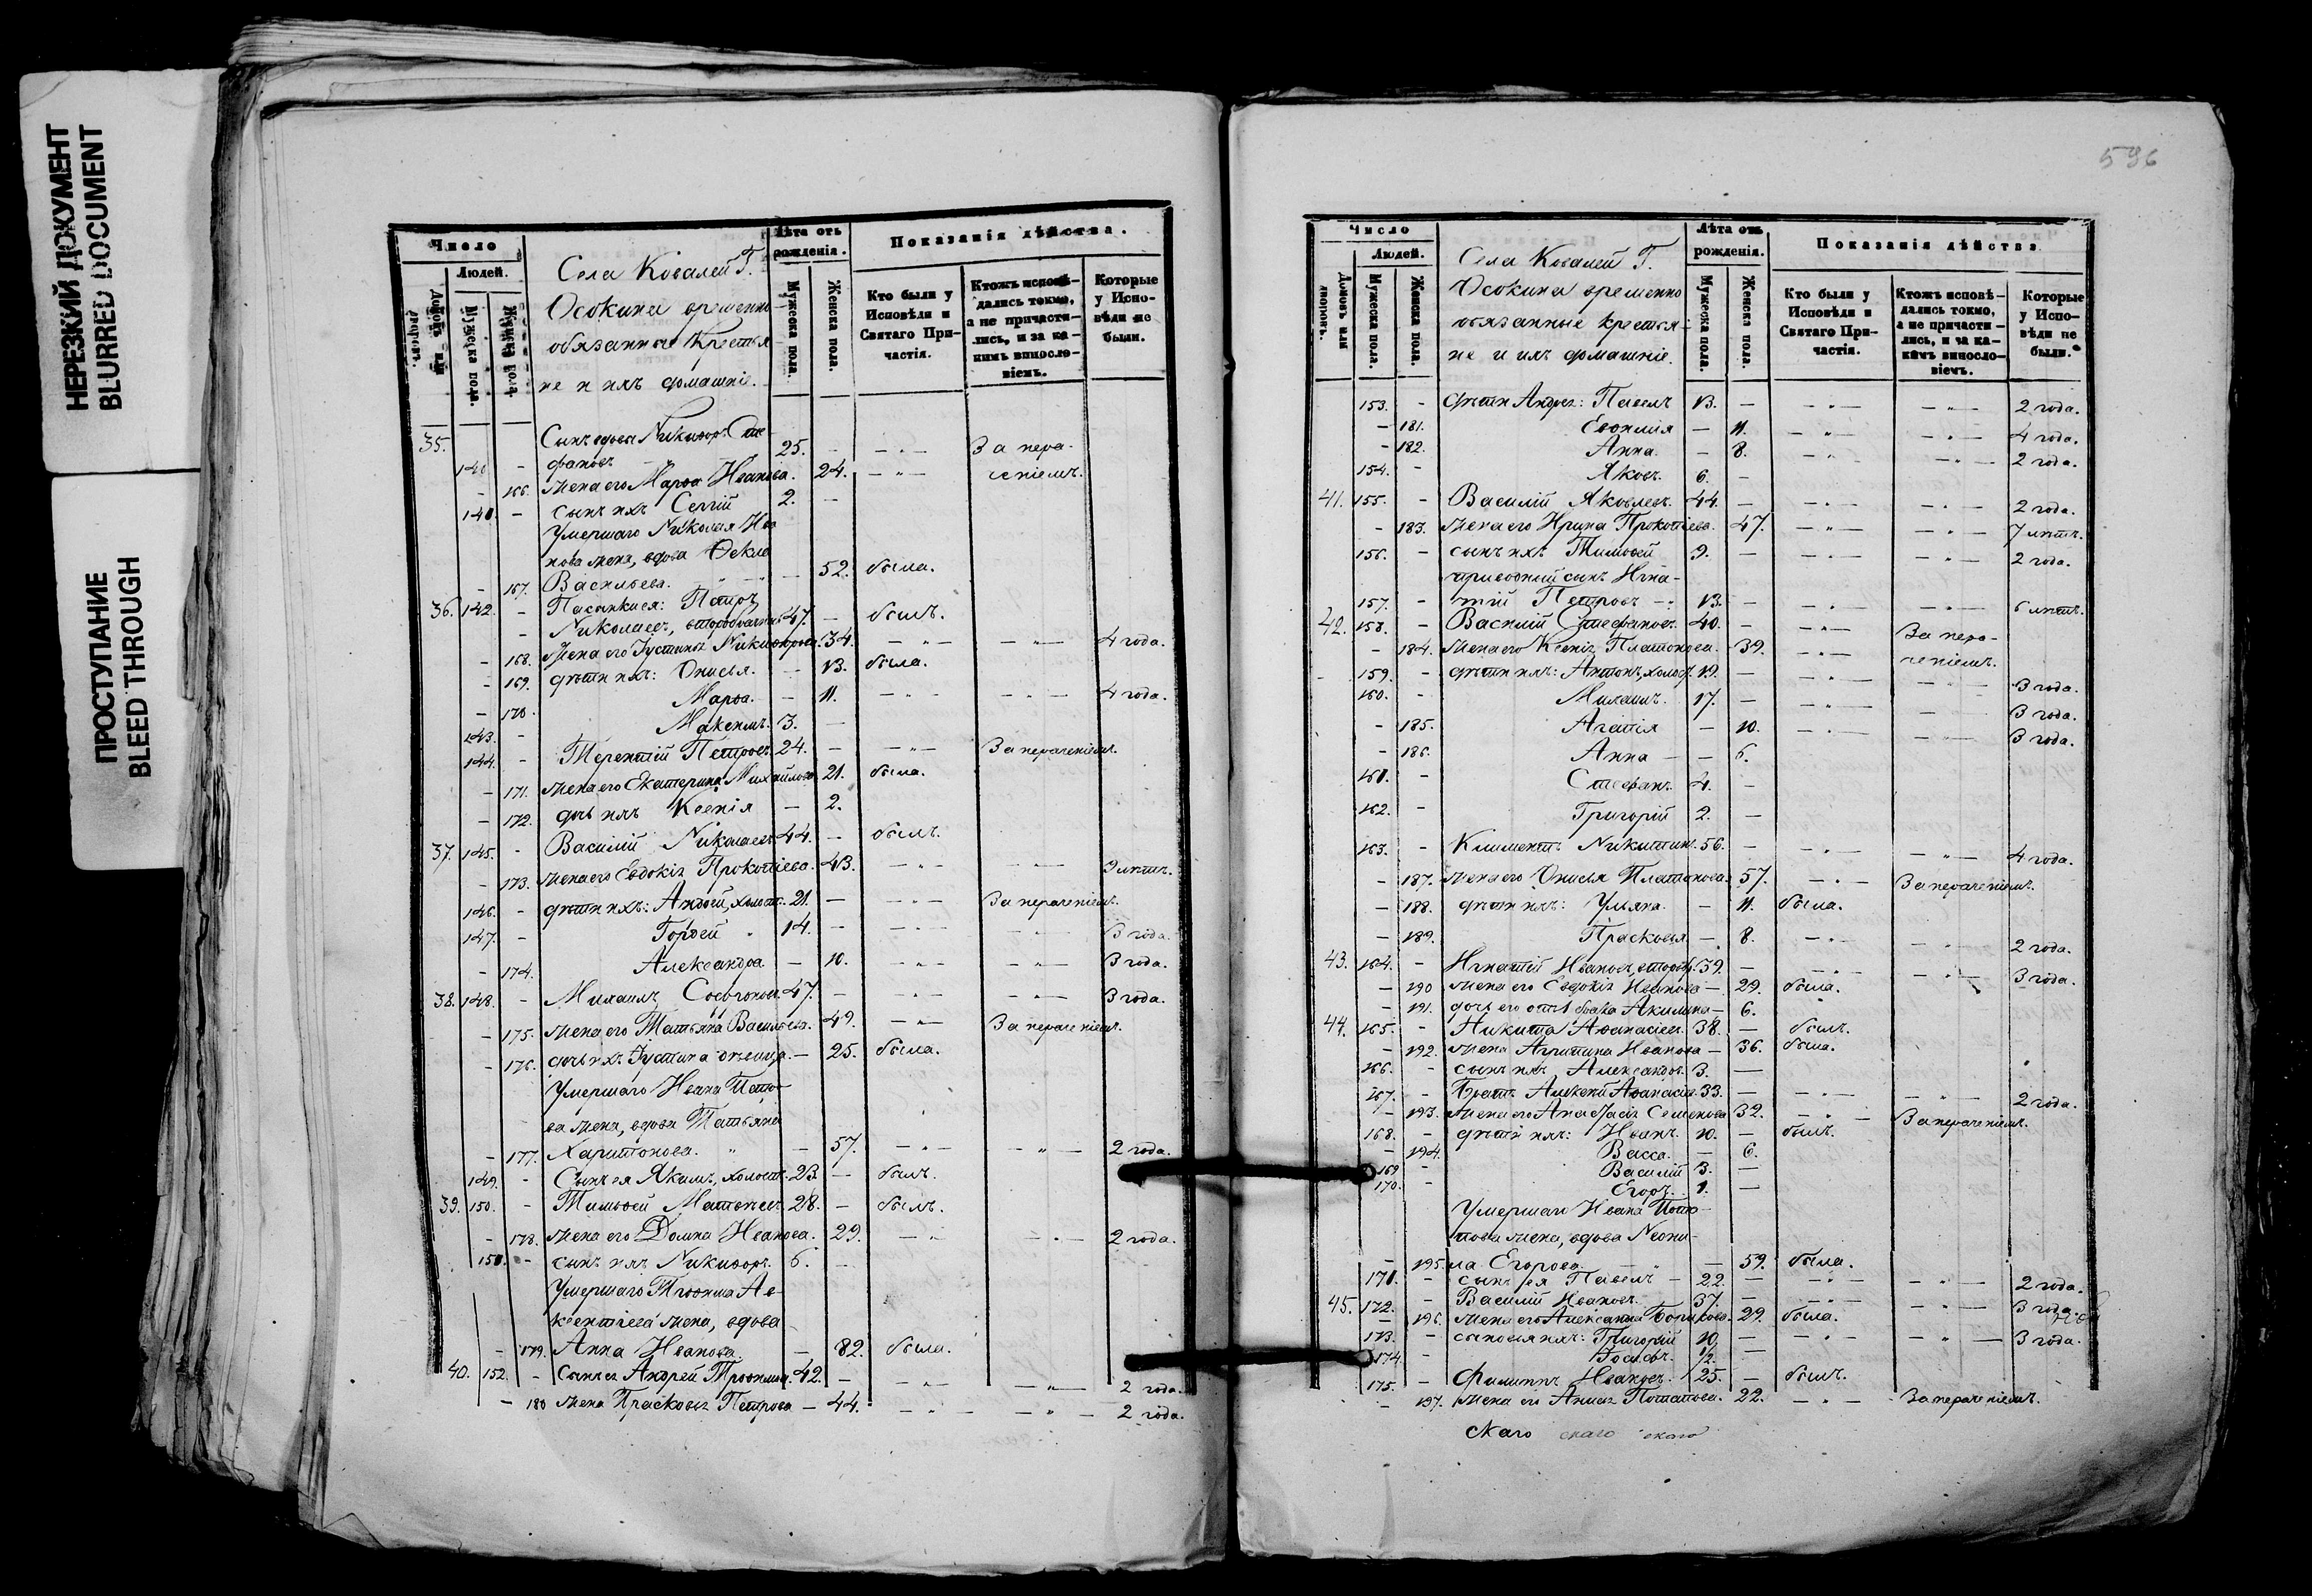 НЕРЕЗКИЙ ДОКУМЕНТ
BLURRED DOCUMENT
ПРОСТУПАНИЕ
BLEED THROUGH
Число
Людей.
Домовъ или дворовъ.
Мужеска пола.
Женска пола.
Села Ковалей Г.
Осокина временно
обязанные крестья
не и ихъ домашніе.
Лѣта отъ рожденія.
Мужеска пола.
Женска пола.
Показанія дѣйства.
Кто были у Исповѣди и Святаго Причастія.
Ктожъ исповѣдались токмо, а не причастились, и за какимъ винословіемъ.
Которые у Исповѣди не были.
35. Сынъ вдовы Никифоръ Сте-
фановъ 25. — — „ — За нера-
- 166. Жена его Марѳа Иванова. 24. — „ — ченіемъ.
141. - сынъ ихъ Сергій 2. —
Умершаго Николая Ива
нова жена, вдова Ѳекла
- 167. Васильева. — 52. была.
36. 142. - Пасынкъ ея: Петръ
Николаевъ, второбрачный 47. — былъ.
- 168. Жена его Іустина Никифорова. 34. — „ — — „ — 4 года.
- 169. дѣти ихъ: Онисья. — 13. была.
- 170. Марѳа. — 11. — „ — — „ — 4 года.
143. - Максимъ. 3. —
144. - Терентій Петровъ. 24. — — „ — За нераченіемъ.
- 171. Жена его Екатерина Михайлова 21. была.
- 172. дочь ихъ Ксенія — 2.
37. 145. - Василій Николаевъ 44. — былъ.
- 173. Жена его Евдокія Прокопіева. 43. — „ — — „ — 9 лѣтъ.
146. - дѣти ихъ: Андрей, холостъ. 21. — — „ — За нераченіемъ.
147. - Гордей 14. — — „ — — „ — 3 года.
- 174. Александра — 10. — „ — — „ — 3 года.
38. 148. - Михаилъ Софоновъ 47. — — „ — — „ — 3 года.
- 175. Жена его Татьяна Васильева. 49. — „ — За нераченіемъ.
- 176. дочь ихъ Іустина дѣвица. — 25. была.
Умершаго Ивана Пото-
ва жена, вдова Татьяна
- 177. Харитонова. „ — 57. — „ — — „ — 2 года.
149. - Сынъ ея Якимъ, холостъ. 23. — былъ.
39. 150. - Тимоѳей Матвѣевъ 28. — былъ.
- 178. Жена его Домна Иванова. 29. — „ — — „ — 2 года.
151. - сынъ ихъ Никифоръ. 6. —
Умершаго Трофима Ав-
ксентіева жена, вдова
- 179. Анна Иванова. — 82. была.
40. 152. - Сынъ ея Андрей Трофимовъ. 42. — — „ — — „ — 2 года.
- 180 Жена Прасковья Петрова — 44. — „ — — „ — 2 года.
596
Число
Людей.
Домовъ или дворовъ.
Мужеска пола.
Женска пола.
Села Ковалей Г.
Осокина временно
обязанные крестья-
не и ихъ домашніе.
Лѣта отъ рожденія.
Мужеска пола.
Женска пола.
Показанія дѣйства
Кто были у Исповѣди и Святаго Причастія.
Ктожъ исповѣдались токмо, а не причастились, и за какимъ винословіемъ.
Которые у Исповѣди не были.
153. - дѣти Андрея: Павелъ 13. — — „ — — „ — 2 года.
- 181. Евфимія — 11. — „ — — „ — 4 года.
- 182. Анна. — 8. — „ — — „ — 2 года.
154. - Яковъ. 6. —
41. 155. - Василій Яковлевъ. 44. — — „ — — „ — 2 года.
- 183. Жена его Ирина Прокопіева. 47. — „ — — „ — 7 лѣтъ.
156. - сынъ ихъ Тимоѳей 9. — — „ — — „ — 2 года.
приводный сынъ Игна-
157. - тій Петровъ 13. — — „ — — „ — 6 лѣтъ.
42. 158. - Василій Стефановъ. 40. — — „ — За нера-
- 184. Жена его Ксенія Платонова. 39. — „ — ченіемъ.
159. - дѣти ихъ: Антонъ, холост. 19. — — „ — — „ — 3 года.
160. - Михаилъ. 17. — — „ — — „ — 3 года.
- 185. Агапія — 10. — „ — — „ — 3 года.
- 186. Анна — 6.
161. - Стефанъ. 4. —
162. - Григорій 2. —
163. - Климентъ Никитинъ. 56. — — „ — — „ — 4 года.
- 187. Жена его Онисья Платонова. 57. — „ — За нераченіемъ.
- 188. дѣти ихъ: Ульяна. — 11. была.
- 189. Прасковья. — 8. — „ — — „ — 2 года.
43. 164. - Игнатій Ивановъ, второбр. 39. — — „ — — „ — 3 года.
- 190 Жена его Евдокія Иванова — 29. была.
- 191. дочь его отъ 1 брака Акилина — 6.
44. 165. - Никита Аѳанасіевъ. 38. — былъ.
- 192. Жена Агрипина Иванова — 36. была.
166. - сынъ ихъ Александръ. 3. —
167. - Братъ Алексѣй Аѳанасіев. 33. — — „ — — „ — 2 года.
- 193. Жена его Анастасія Семенова 32. — „ — За нераченіемъ.
168. - дѣти ихъ: Иванъ. 10. — былъ.
- 194. Васса. — 6.
169 Василій 3. —
170. - Егоръ. 1. —
Умершаго Ивана Пото-
пова жена, вдова Неони-
- 195. ла Егорова. — 59. была.
171. - сынъ ея Павелъ 22. — — „ — — „ — 2 года.
45. 172. - Василій Ивановъ. 37. — — „ — — „ — 3 года.
- 196. Жена его Александра Борисова. 29. была.
173. - сыновья ихъ: Григорій 10. — — „ — — „ — 3 года.
174. - Іосифъ. 1/2. —
175. - Филиппъ Ивановъ. 25. — былъ.
- 197. Жена его Анна Потапова. 22. — „ — За нераченіемъ.
скаго скаго скаго